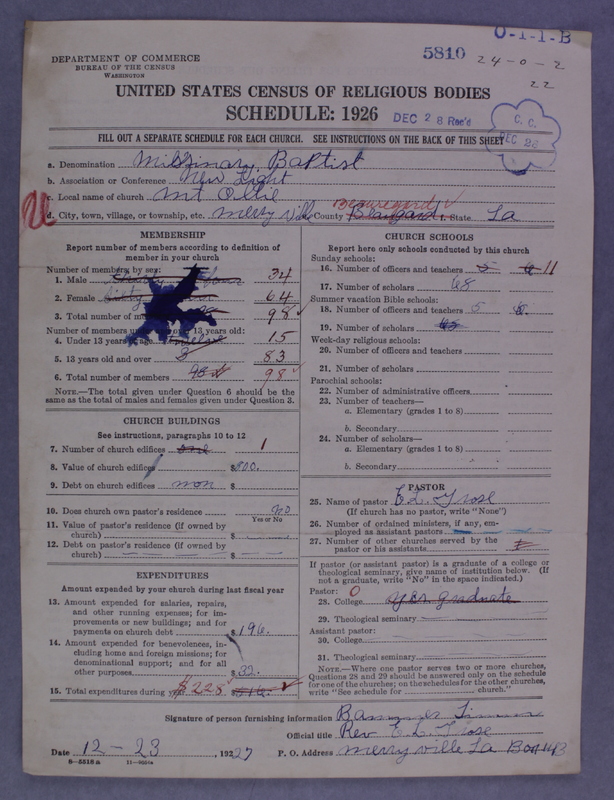 O-1-1-B
5810
24-0-2
22
DEPARTMENT OF COMMERCE
BUREAU OF THE CENSUS
WASHINGTON
UNITED STATES CENSUS OF RELIGIOUS BODIES
SCHEDULE: 1926
DEC 28 Rec'd
C. C.
DEC 28
FILL OUT A SEPARATE SCHEDULE FOR EACH CHURCH. SEE INSTRUCTIONS ON THE BACK OF THIS SHEET
a. Denomination Missinary Baptist
b. Association or Conference New Light
c. Local name of church Mt Ollie
Beauregard
d. City, town, village, or township, etc. Merry Ville County State La
MEMBERSHIP
Report number of members according to definition of
member in your church
Number of members by sex:
1. Male 34
2. Female 64
3. Total number of 98
Number of members under 13 years old:
4. Under 13 years of age 15
5. 13 years old and over 83
6. Total number of members 98 98
NOTE.—The total given under Question 6 should be the
same as the total of males and females given under Question 3.
CHURCH BUILDINGS
See instructions, paragraphs 10 to 12
7. Number of church edifices one 1
8. Value of church edifices $800.
9. Debt on church edifices non $
10. Does church own pastor's residence no
Yes or No
11. Value of pastor's residence (if owned by
church) $
12. Debt on pastor's residence (if owned by
church) $
EXPENDITURES
Amount expended by your church during last fiscal year
13. Amount expended for salaries, repairs,
and other running expenses; for im-
provements or new buildings; and for
payments on church debt $196.
14. Amount expended for benevolences, in-
cluding home and foreign missions; for
denominational support; and for all
other purposes $32.
15. Total expenditures during $228
CHURCH SCHOOLS
Report here only schools conducted by this church
Sunday schools:
16. Number of officers and teachers 5 6 11
17. Number of scholars 68
Summer vacation Bible schools:
18. Number of officers and teachers 5 6
19. Number of scholars 63
Week-day religious schools:
20. Number of officers and teachers
21. Number of scholars
Parochial schools:
22. Number of administrative officers
23. Number of teachers—
a. Elementary (grades 1 to 8)
b. Secondary
24. Number of scholars—
a. Elementary (grades 1 to 8)
b. Secondary
PASTOR
25. Name of pastor E. L. Trose
(If church has no pastor, write "None")
26. Number of ordained ministers, if any, em-
ployed as assistant pastors
27. Number of other churches served by the
pastor or his assistants
If pastor (or assistant pastor) is a graduate of a college or
theological seminary, give name of institution below. (If
not a graduate, write "No" in the space indicated.)
Pastor: 0
28. College yes graduate
29. Theological seminary
Assistant pastor:
30. College
31. Theological seminary
NOTE.—Where one pastor serves two or more churches,
Questions 28 and 29 should be answered only on the schedule
for one of the churches; on the schedules for the other churches,
write "See schedule for church."
Signature of person furnishing information
Official title Rev E. L. Trose
Date 12-23, 1927 P. O. Address Merry ville La Box
8—5518 a 11—9664a